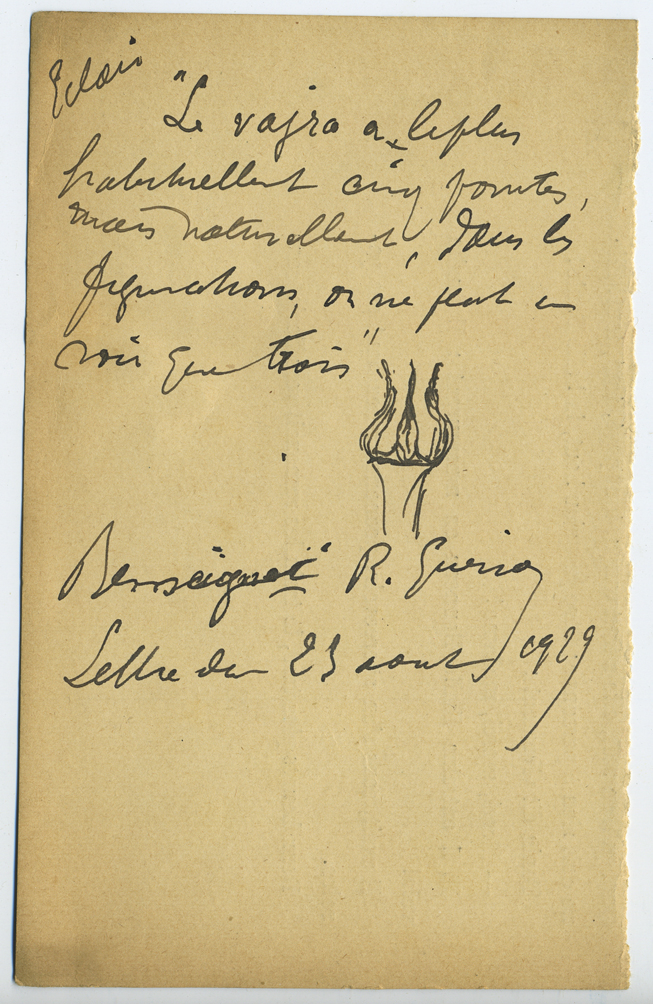 Eclair
"Le vajra a le plus
habituellement cinq pointes,
mais naturellement, dans les
figurations, on ne peut en
voir que trois"
Renseignet R. Guénon
Lettre du 23 aout 1929